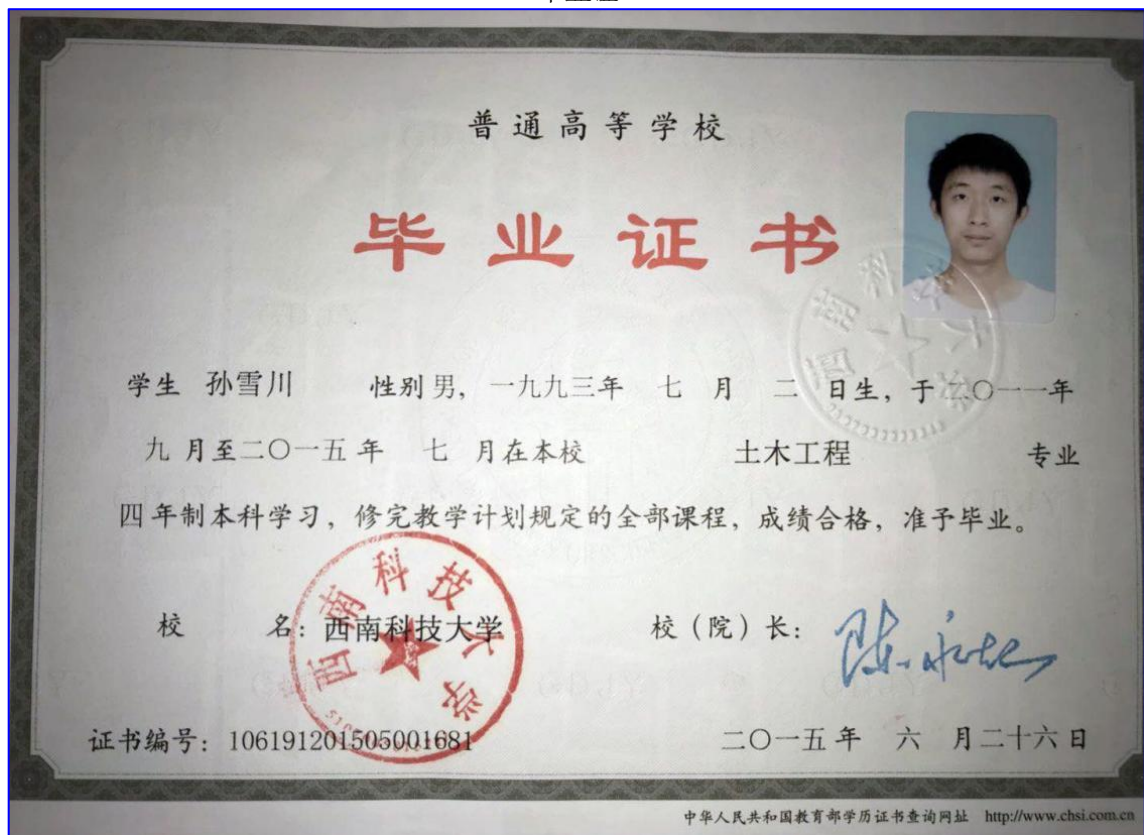 普通高等学校
毕业证书
学生 孙雪川 性别 男, 一九九三年 七 月 二 日生, 于 二〇一一年
九 月至二〇一五 年 七 月在本校 土木工程 专业
四 年制本科学习, 修完教学计划规定的全部课程, 成绩合格, 准予毕业。
校 名: 西南科技大学 校（院）长:
西南科技大学
证书编号: 106191201505001681 二〇一五 年 六 月二十六 日
中华人民共和国教育部学历证书查询网址 http://www.chsi.com.cn